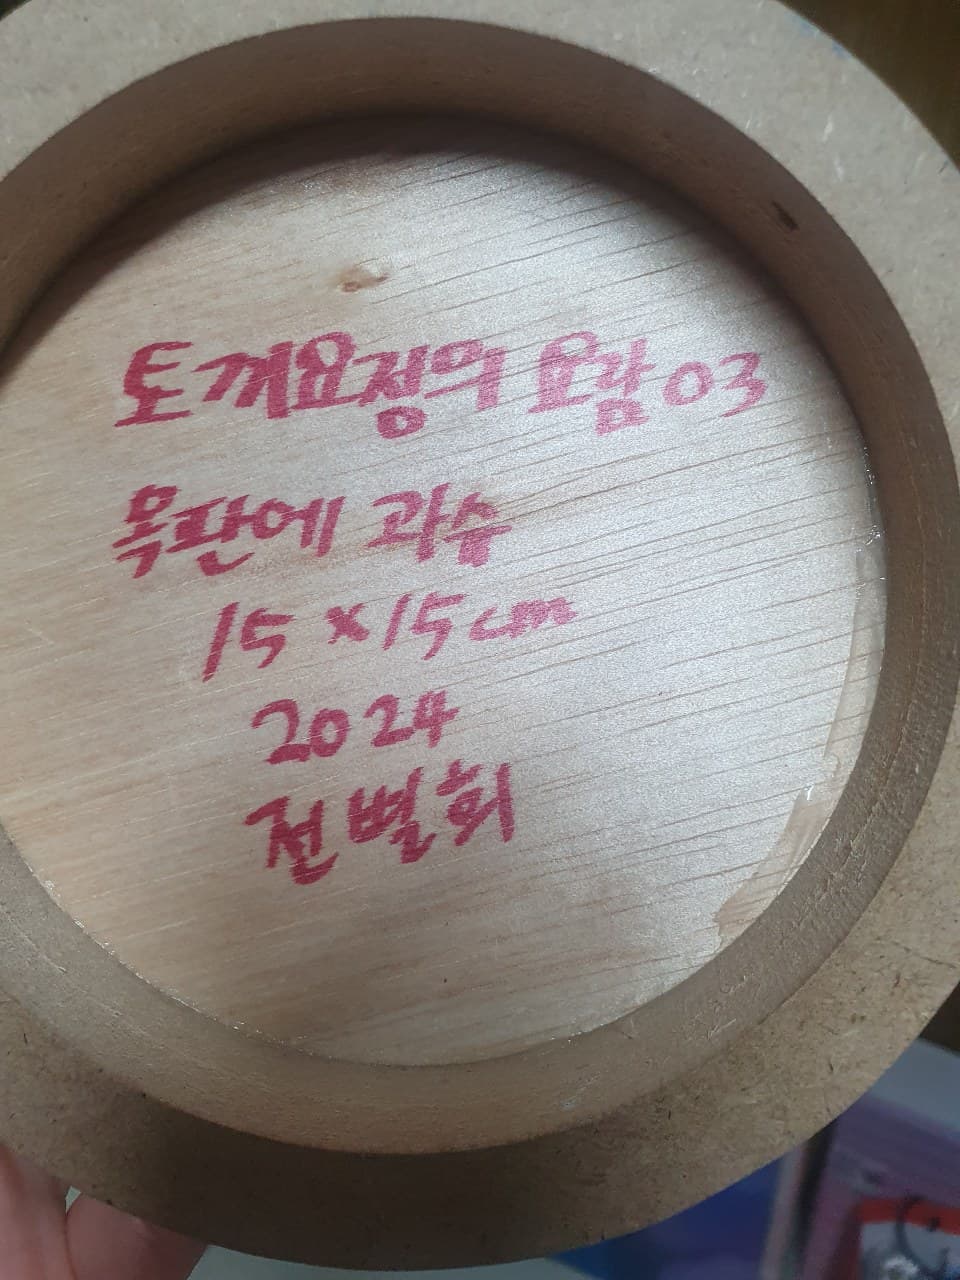 토끼요정의 요람 03
목판에 과슈
15×15cm
2024
전별희